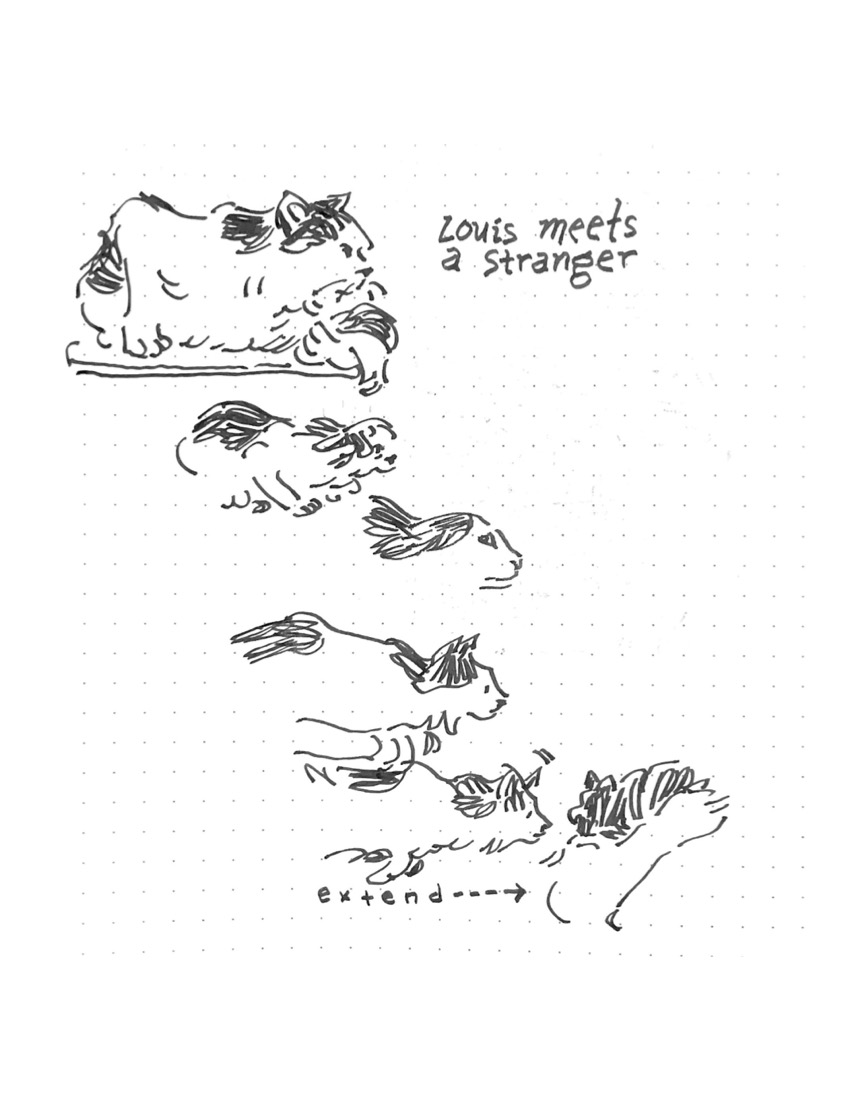 Louis meets
a stranger
extend---->